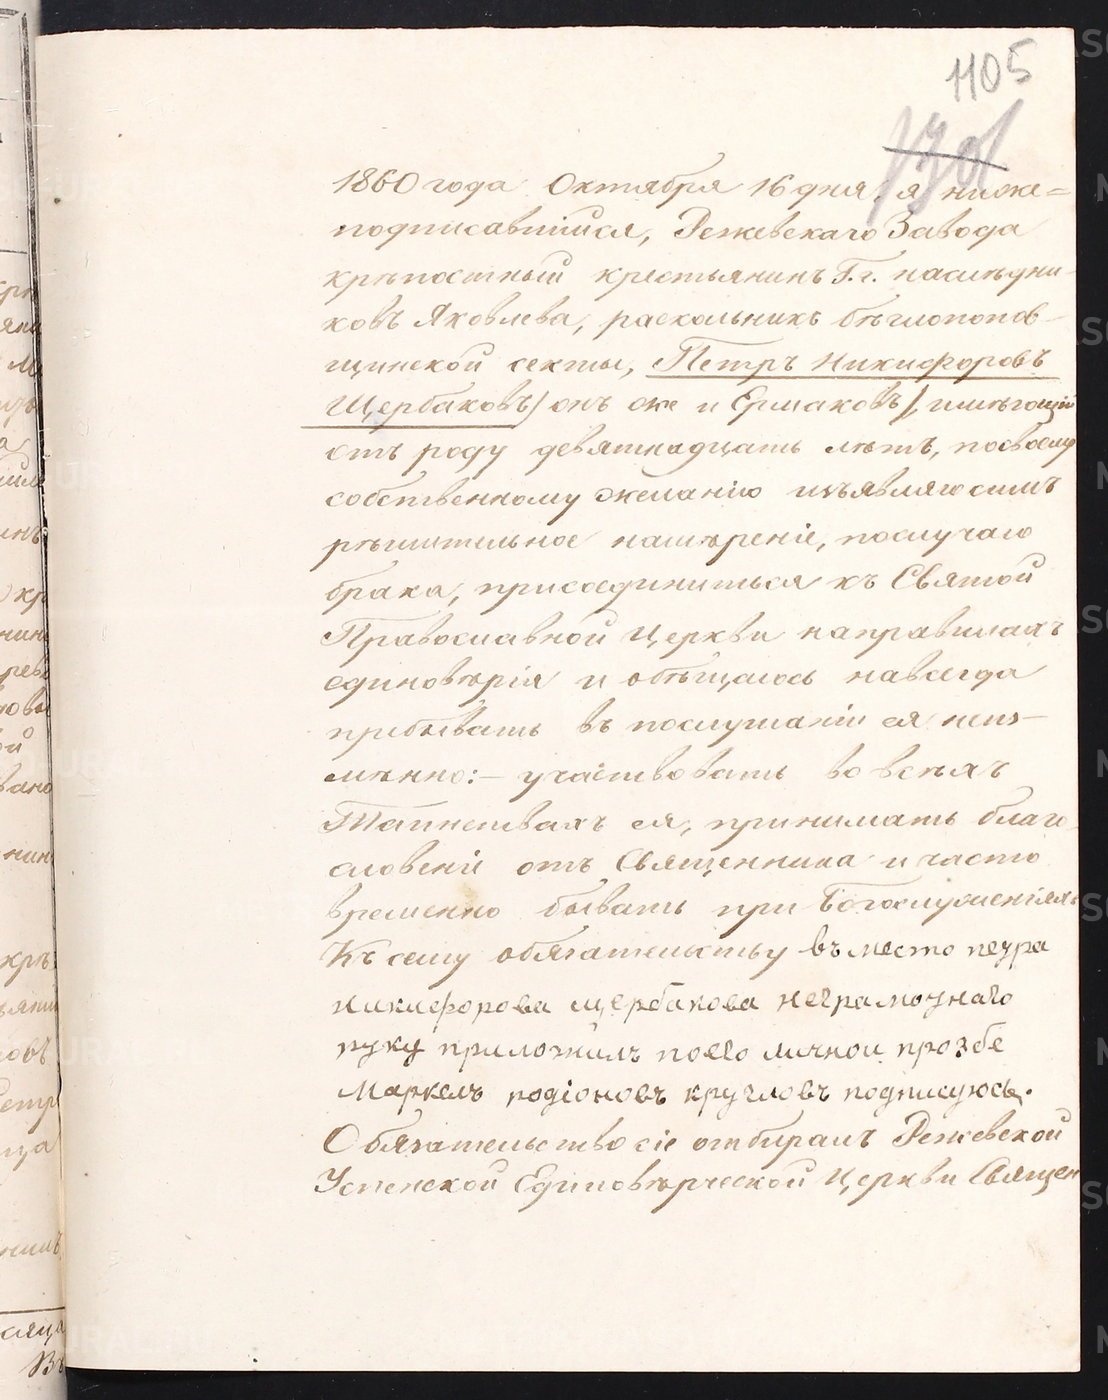 1105
1860 года Октября 16 дня я ниже=
подписавшийся, Режевскаго Завода
крѣпостный крестьянинъ Г.г. наслѣдни-
ковъ Яковлева, раскольникъ бѣглопопов-
щинской секты, Петръ Никифоровъ
Щербаковъ/онъ же и Ермаковъ/, имѣющій
отъ роду девятнадцать лѣтъ, посвоему
собственному желанію изъявляю симъ
рѣшительное намѣреніе, послучаю
брака, присоединиться къ Святой
Православной Церкви направилахъ
единовѣрія и обѣщаюсь навсегда
пребывать въ послушаніи ея неиз-
мѣнно:- участвовать во всѣхъ
Таинствахъ ея, принимать благо-
словеніе отъ Священника и часто
временно бывать при Богослуженіяхъ
Къ сему обязательству въместо петра
никифорова щербакова неграмотнаго
руку приложилъ поево личной прозбе
Маркелъ родіоновъ кругловъ подписуюсь.
Обязательство сіе отбиралъ Режевской
Успенской Единовѣрческой Церкви Священ